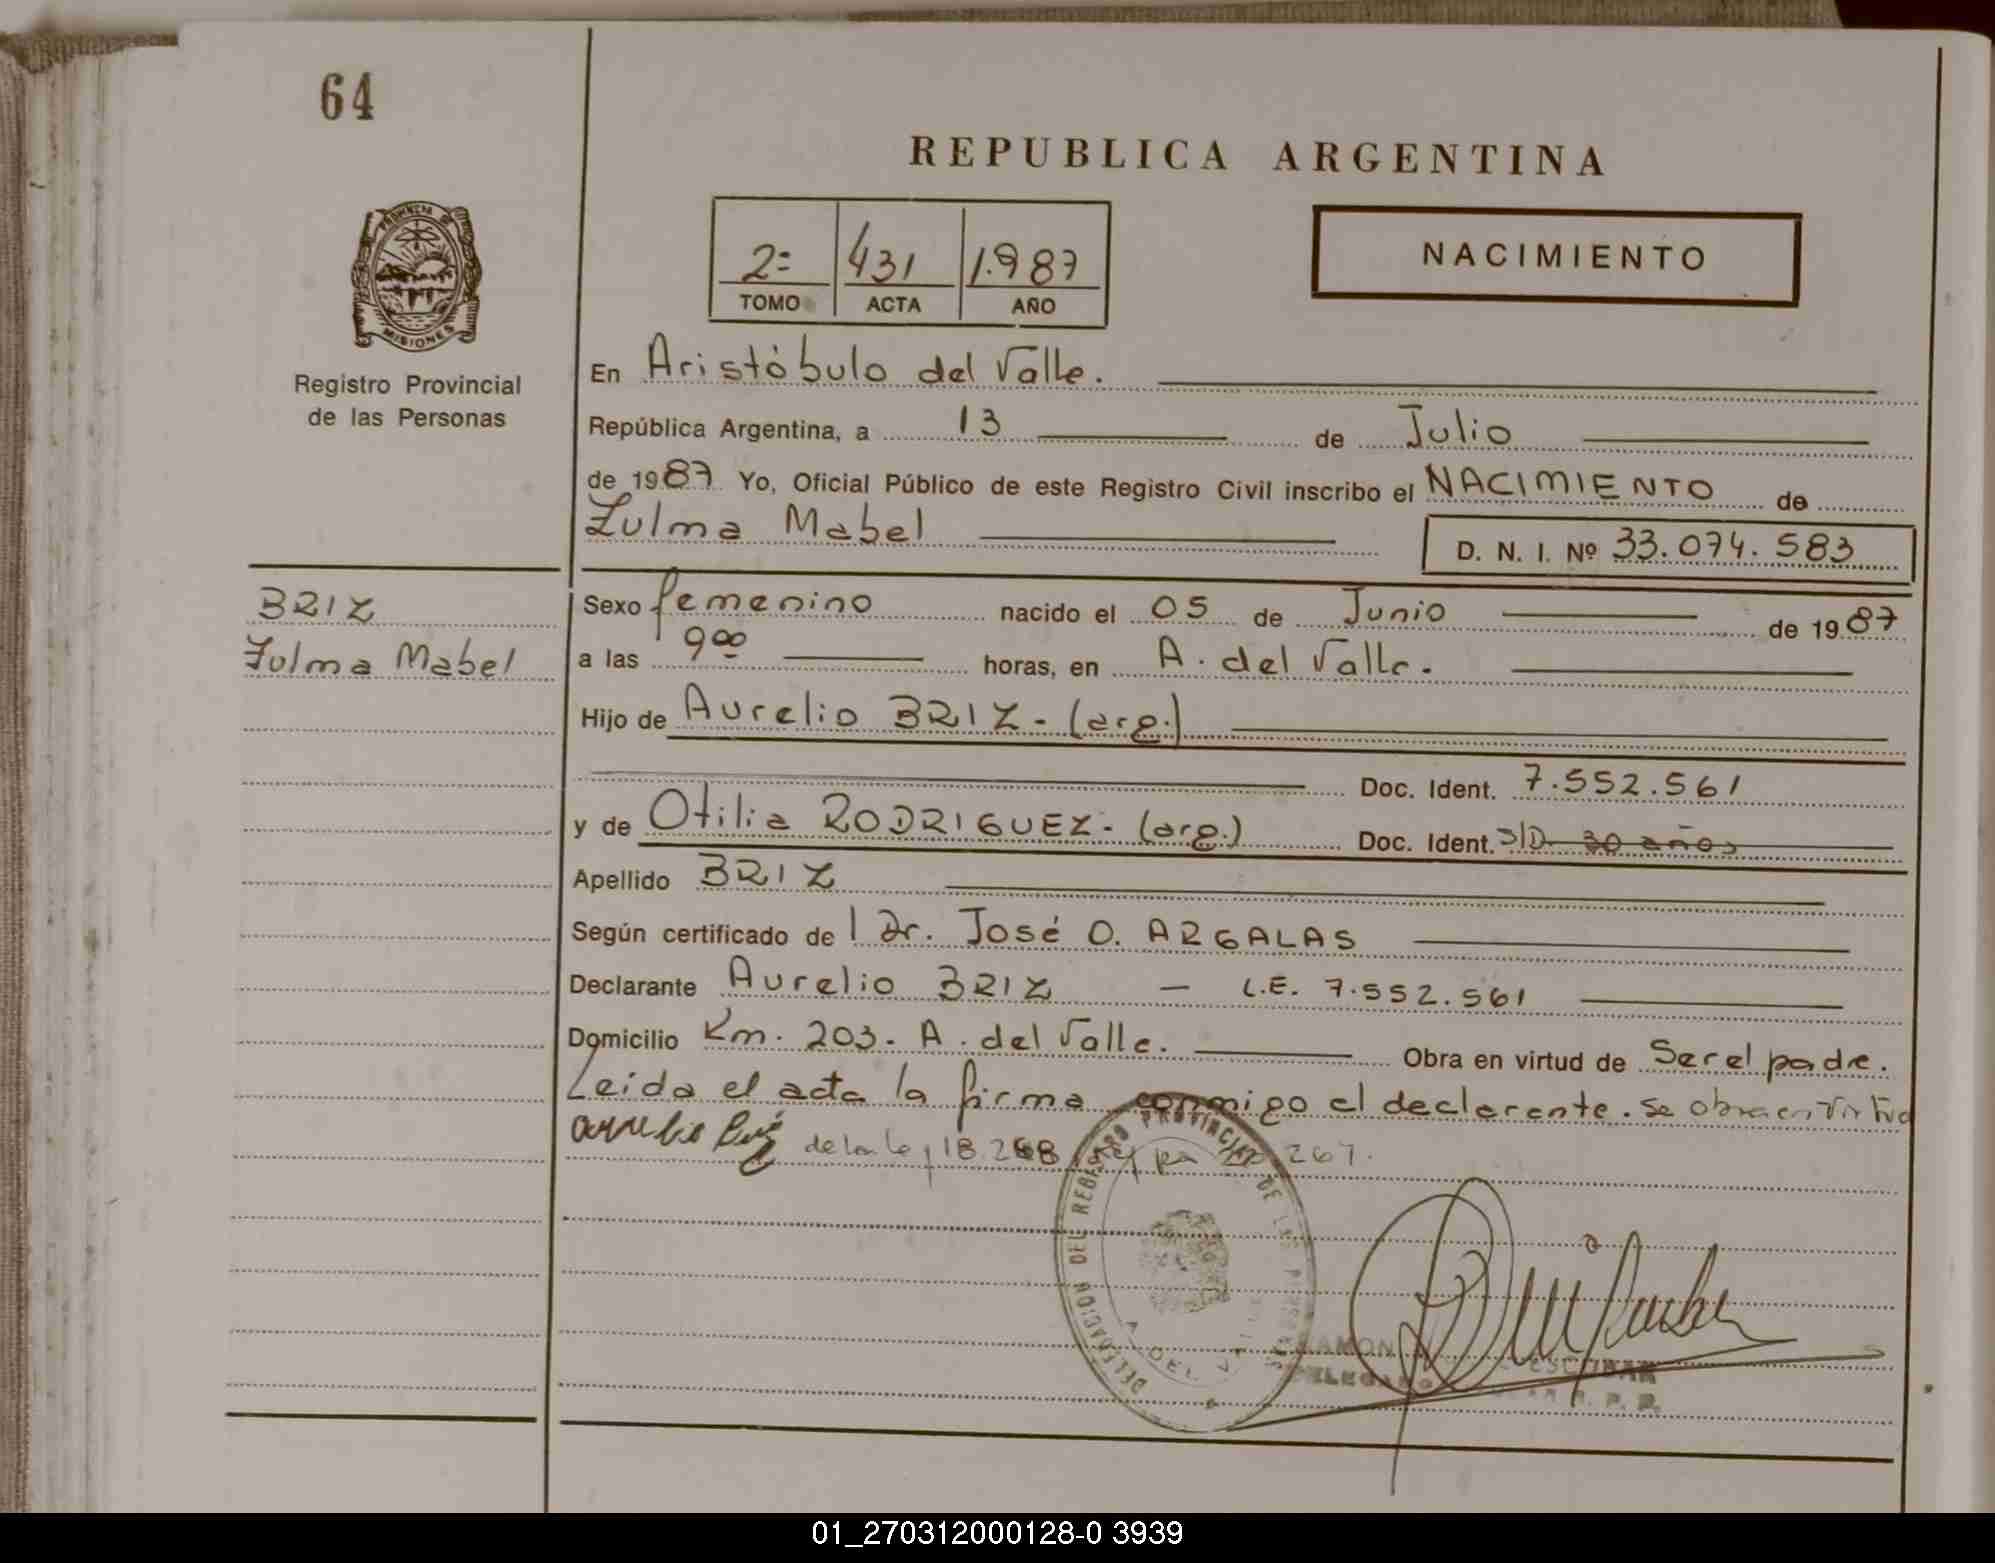 64
REPUBLICA ARGENTINA
2= 431 1.987
TOMO ACTA AÑO
NACIMIENTO
PROVINCIA DE
MISIONES
Registro Provincial
de las Personas
En Aristóbulo del Valle.
República Argentina, a 13 de Julio
de 1987 Yo, Oficial Público de este Registro Civil inscribo el NACIMIENTO de
Zulma Mabel D. N. I. Nº 33.074.583
BRIZ
Zulma Mabel
Sexo femenino nacido el 05 de Junio de 1987
a las 9 00 horas, en A. del Valle.
Hijo de Aurelio BRIZ - (arg.)
Doc. Ident. 7.552.561
y de Otilia RODRIGUEZ - (arg.) Doc. Ident. S/D 30 años
Apellido BRIZ
Según certificado de l Dr. José O. ARGALAS
Declarante Aurelio BRIZ - L.E. 7.552.561
Domicilio Km. 203 - A. del Valle. Obra en virtud de Ser el padre.
Leida el acta la firma conmigo el declarante. Se obra en virtud
de la ley 18.248 267.
DELEGACION DEL REGISTRO PROVINCIAL DE LAS PERSONAS
A. DEL VALLE
RAMON ESCOBAR
DELEGADO R. P. P.
01_270312000128-0 3939